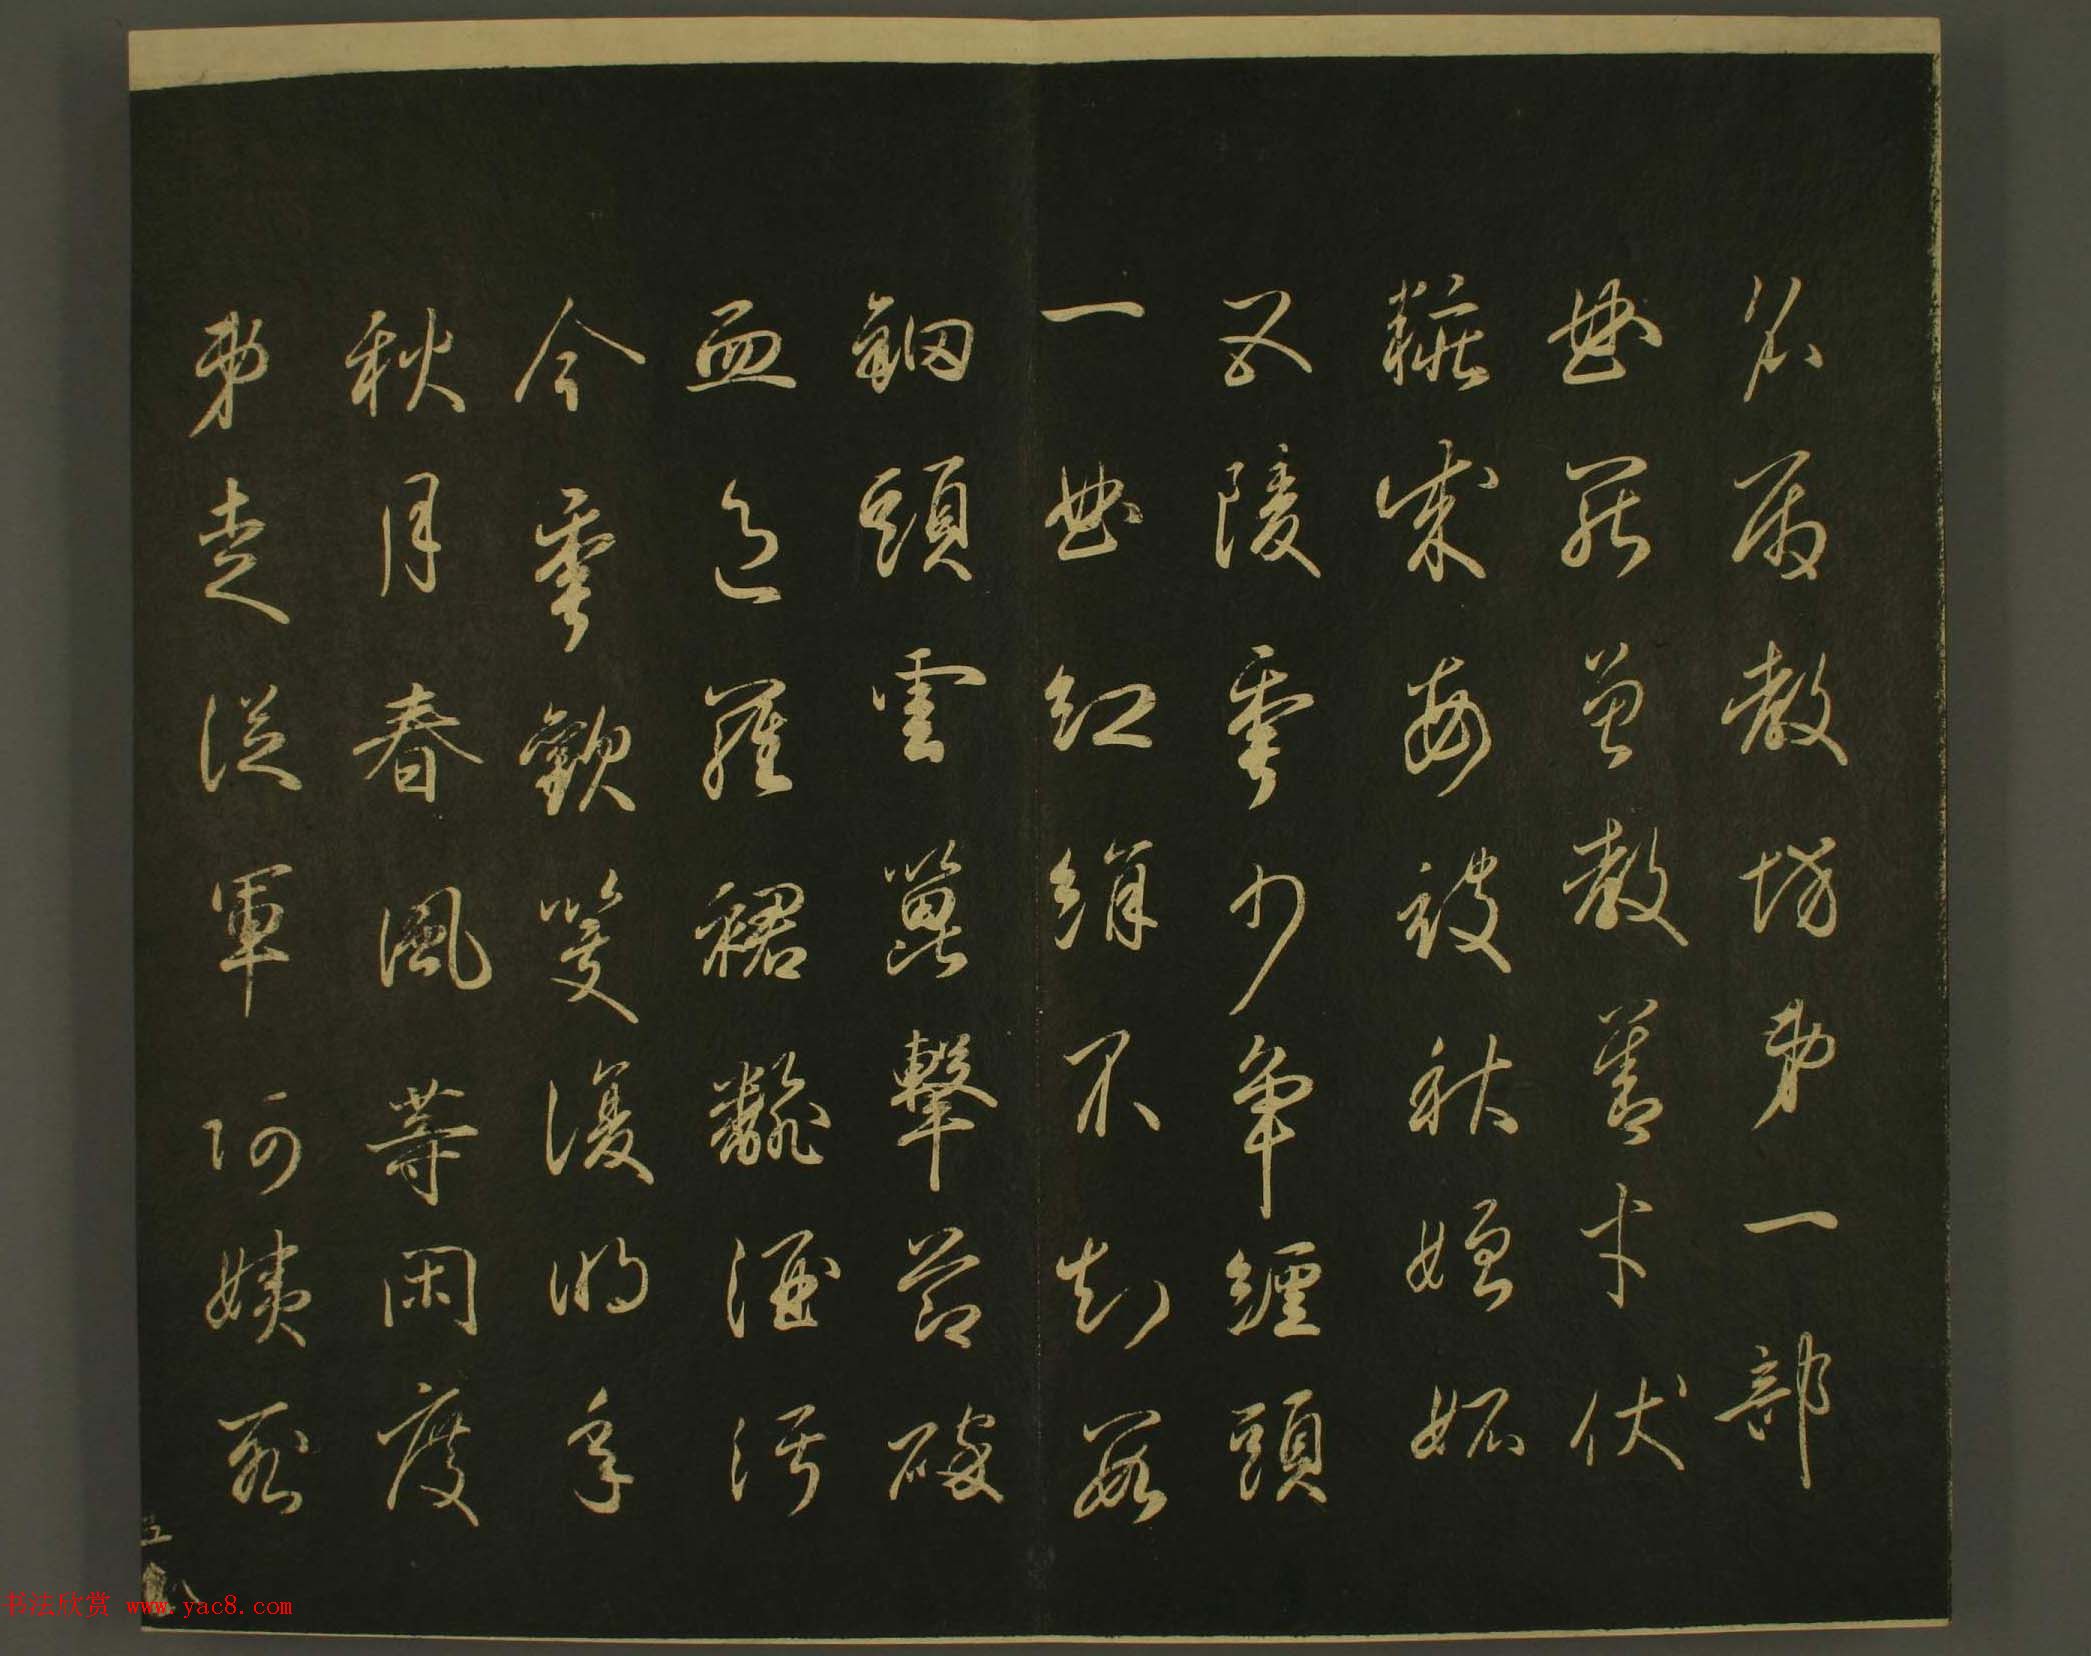 名属教坊第一部
曲罷曾教善才伏
糚成每被秋娘妬
五陵年少争纏頭
一曲紅綃不知數
鈿頭雲篦擊節碎
血色羅裙翻酒污
今年歡笑復明年
秋月春風等閑度
弟走從軍阿姨死
书法欣赏 www.yac8.com